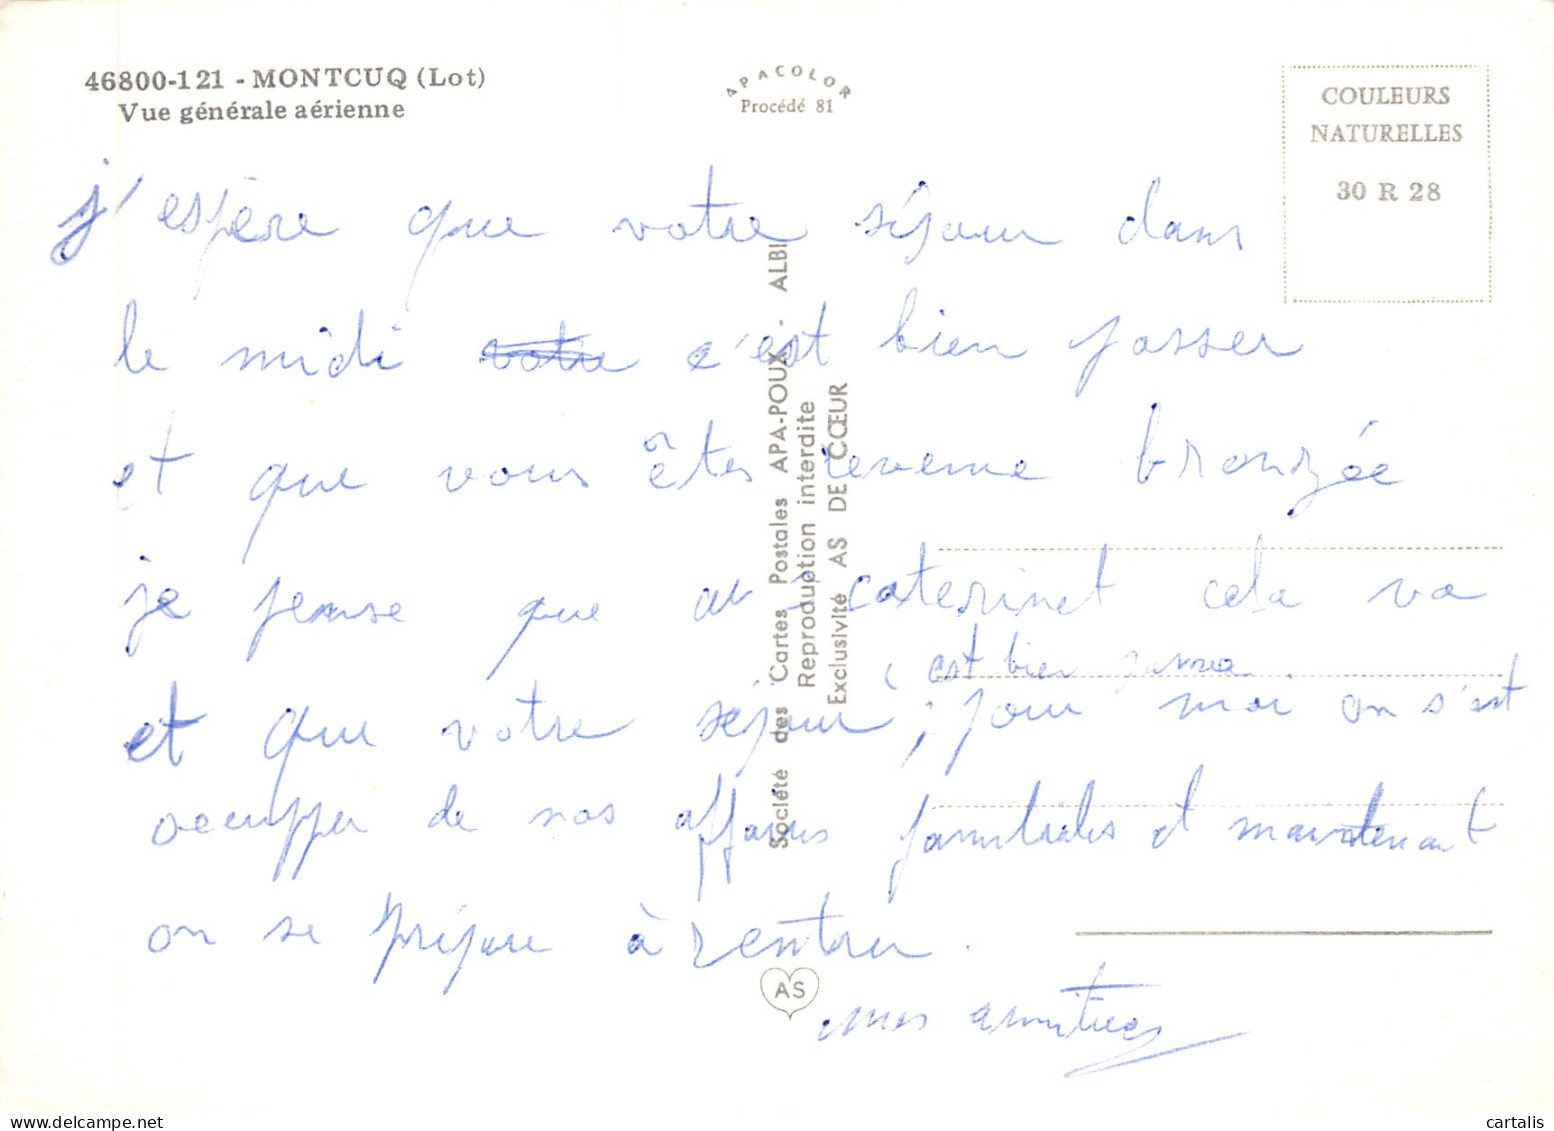 46800-121 - MONTCUQ (Lot)
Vue générale aérienne
APACOLOR
Procédé 81
COULEURS
NATURELLES
30 R 28
j'espère que votre séjour dans
le midi votre c'est bien passer
et que vous êtes revenue bronzée
je pense que au caterinet cela va
c'est bien passer
et que votre séjour, pour moi on s'est
occupper de nos affaires familiales et maintenant
on se prépare à rentrer.
mes amitiees
Société des Cartes Postales APA-POUX - ALBI
Reproduction interdite
Exclusivité AS DE CŒUR
AS
cartalis
delcampe.net